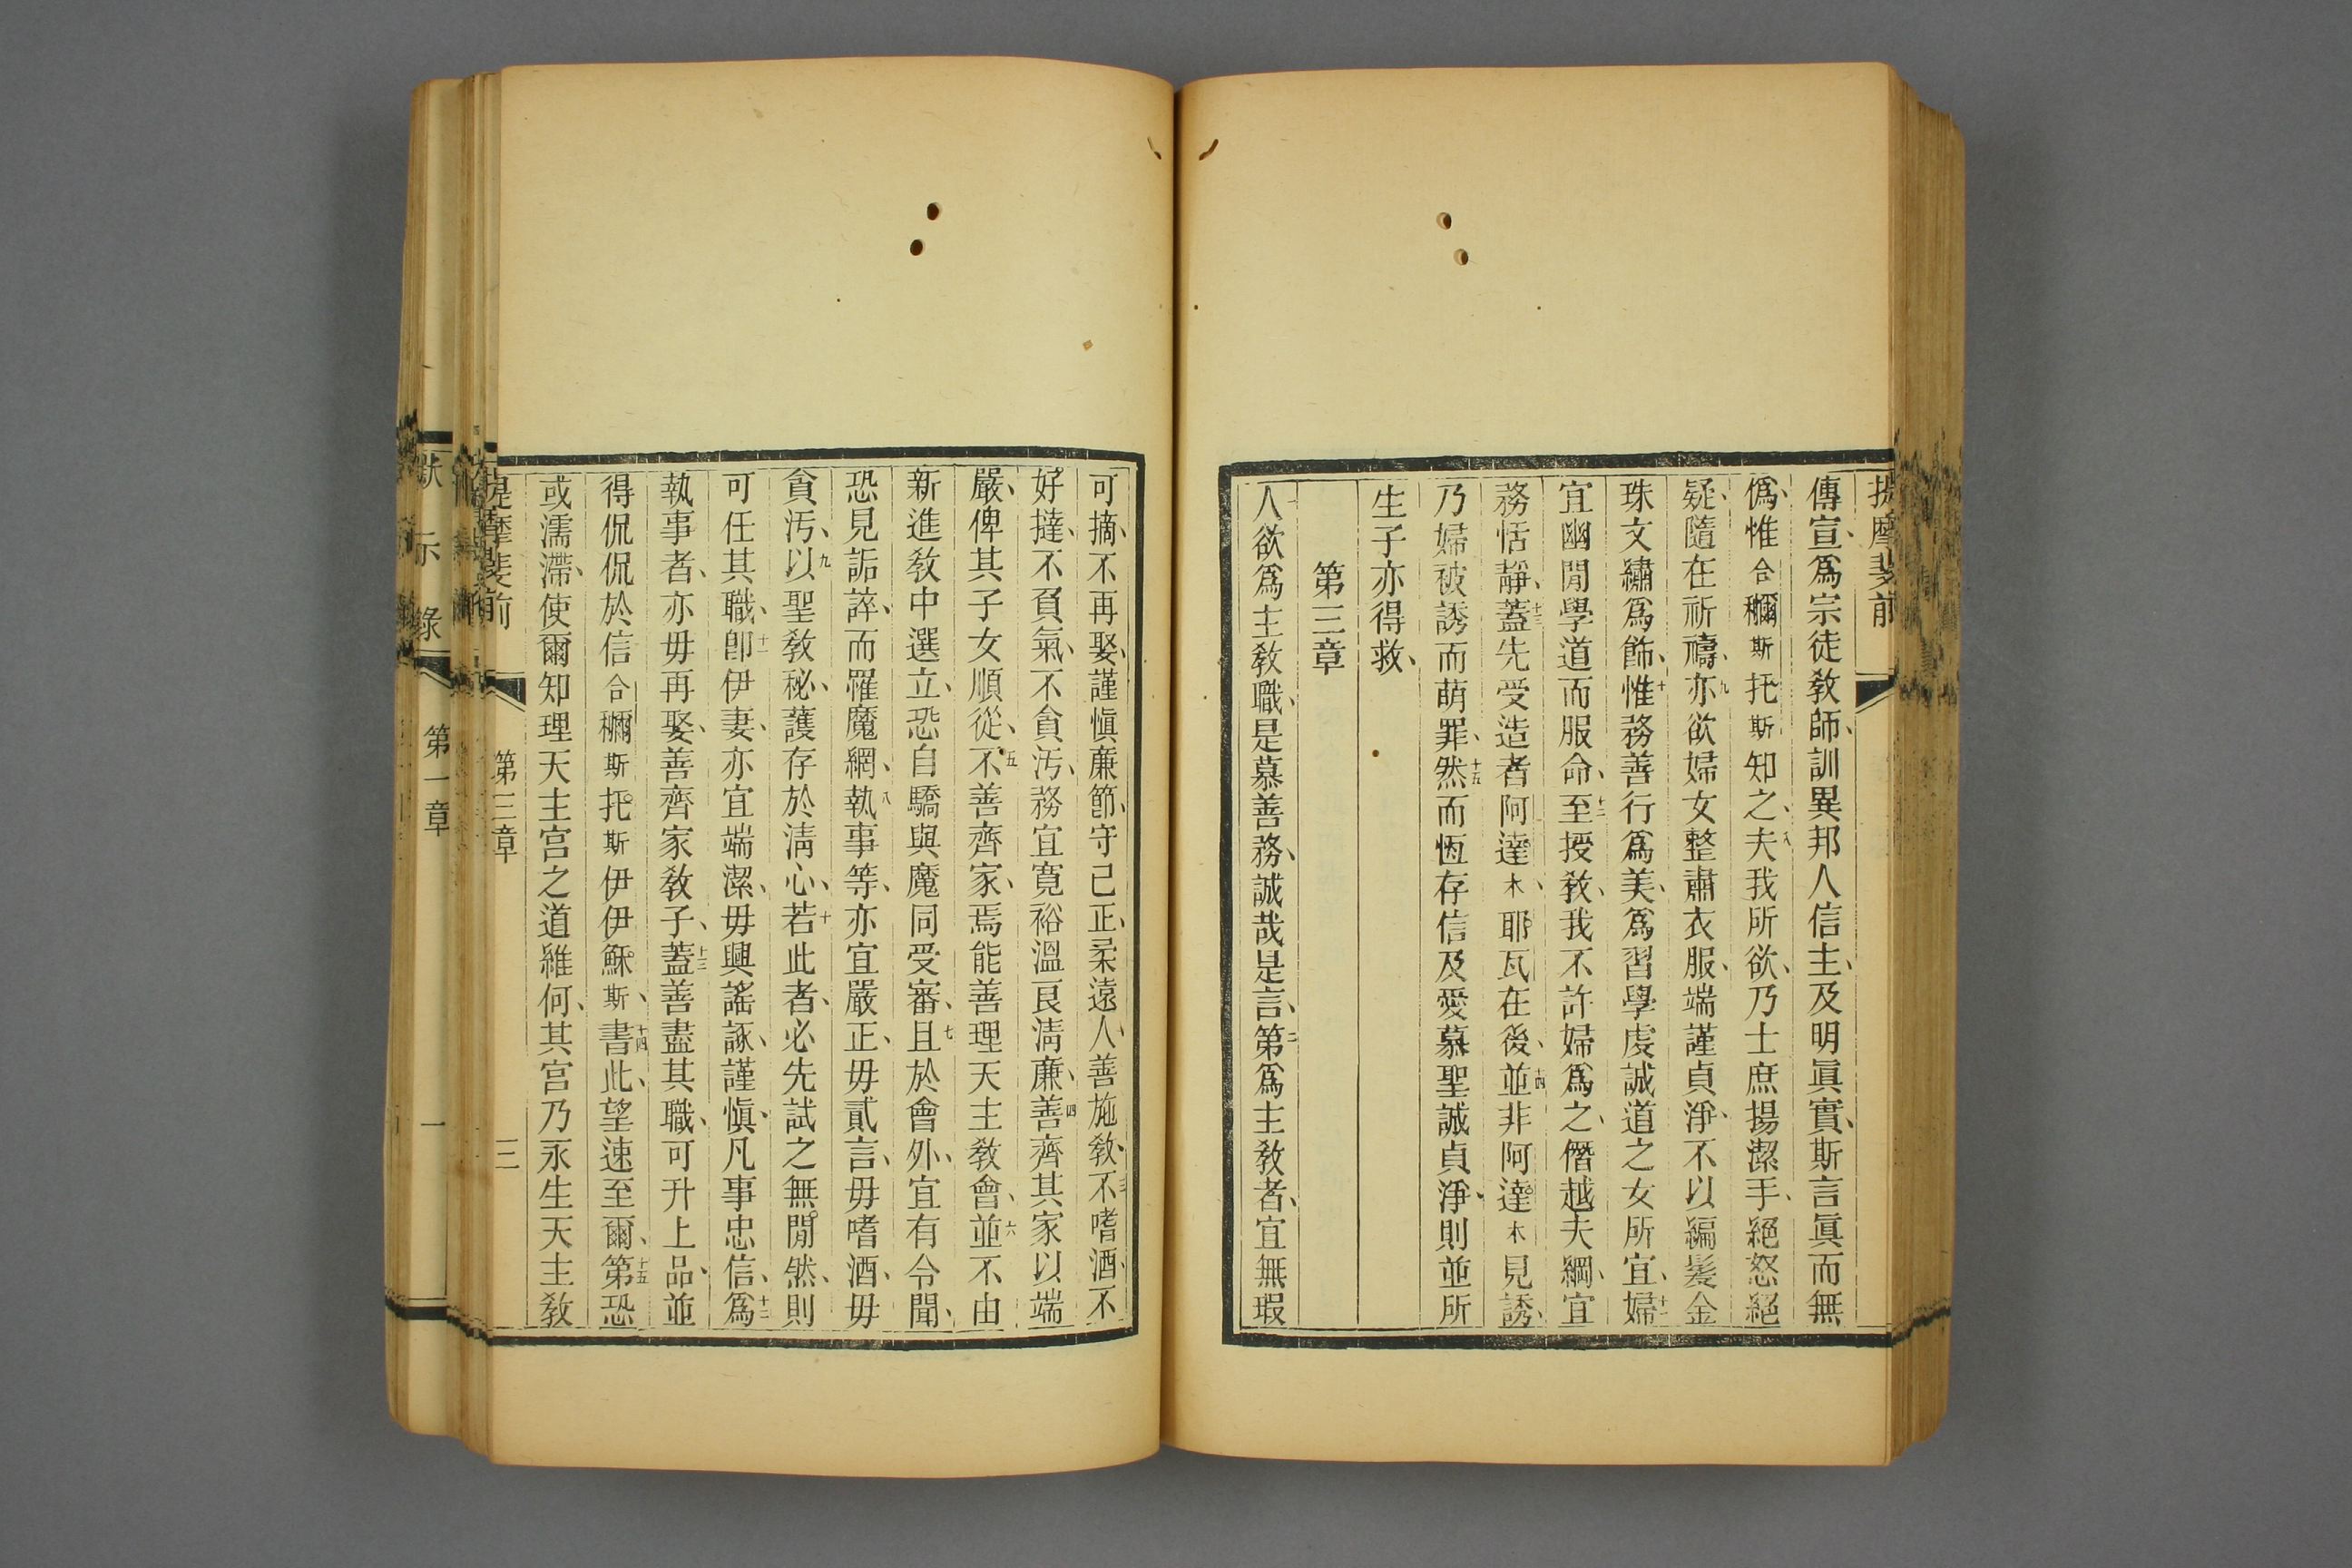 提摩斐前
傳宣、爲宗徒敎師、訓異邦人信主、及明眞實、斯言眞而無
僞、惟合穪斯托斯知之、八夫我所欲、乃士庶揚潔手、絕怒絕
疑、隨在祈禱、九亦欲婦女整肅衣服、端謹貞淨、不以編髮金
珠文繡爲飾、十惟務善行爲美、爲習學虔誠道之女所宜、十一婦
宜幽閒學道而服命、十二至授敎、我不許婦爲之、僭越夫綱、宜
務恬靜、十三蓋先受造者阿達木、耶瓦在後、十四並非阿達木見誘、
乃婦被誘而萌罪、十五然而恆存信及愛慕聖誠貞淨、則並所
生子亦得救、
第三章
一人欲爲主敎職、是慕善務、誠哉是言、二第爲主敎者、宜無瑕
可摘、不再娶、謹愼廉節、守己正、柔遠人、善施敎、三不嗜酒、不
好撻、不負氣、不貪汚、務宜寬裕溫良淸廉、四善齊其家、以端
嚴、俾其子女順從、五不善齊家、焉能善理天主敎會、六並不由
新進敎中選立、恐自驕與魔同受審、七且於會外、宜有令聞、
恐見詬誶、而罹魔網、八執事等、亦宜嚴正、毋貳言、毋嗜酒、毋
貪汚、九以聖敎秘、䕶存於淸心、十若此者、必先試之無閒、然則
可任其職、十一卽伊妻、亦宜端潔、毋興謠諑、謹愼、凡事忠信、十二爲
執事者、亦毋再娶、善齊家敎子、十三蓋善盡其職、可升上品、並
得侃侃於信合穪斯托斯伊伊穌斯、十四書此、望速至爾、十五第恐
或濡滯、使爾知理天主宮之道維何、其宮乃永生天主敎
提摩斐前
第三章
三
默示錄
第一章
一